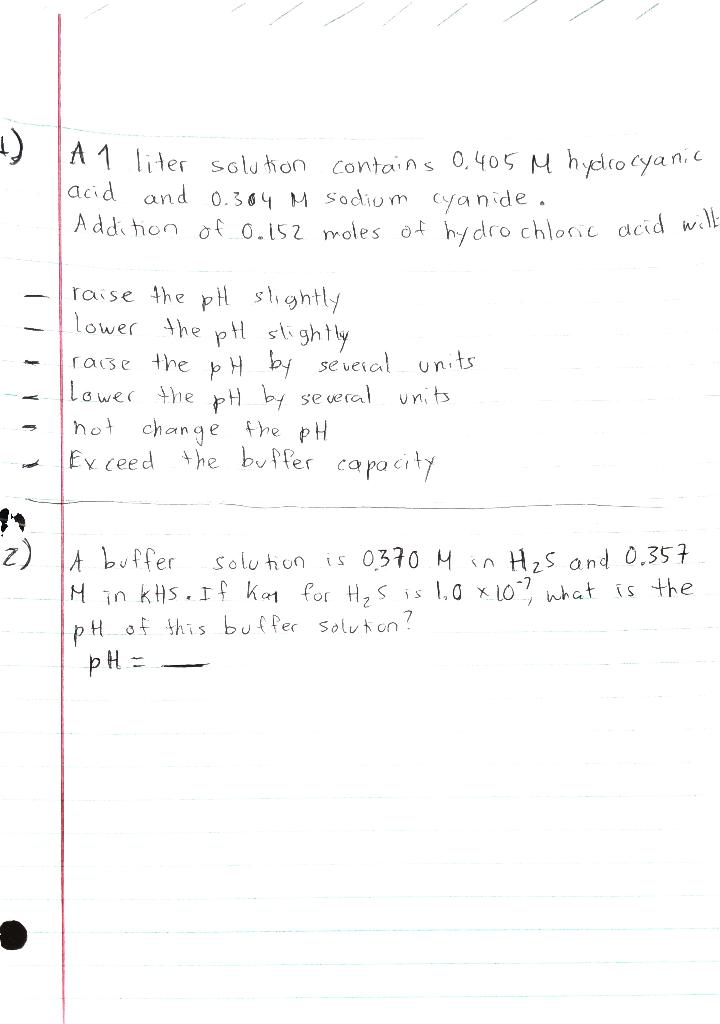 1) A 1 liter solution contains 0.405 M hydrocyanic
acid and 0.304 M sodium cyanide.
Addition of 0.152 moles of hydrochloric acid will
— raise the pH slightly
— lower the pH slightly
— raise the pH by several units
— lower the pH by several units
— not change the pH
— Exceed the buffer capacity
2) A buffer solution is 0.370 M in H₂S and 0.357
M in KHS. If Ka1 for H₂S is 1.0 × 10⁻⁷, what is the
pH of this buffer solution?
pH = __